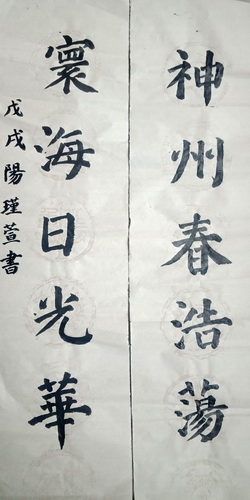 神州春浩蕩
寰海日光華
戊戌陽瑾萱書